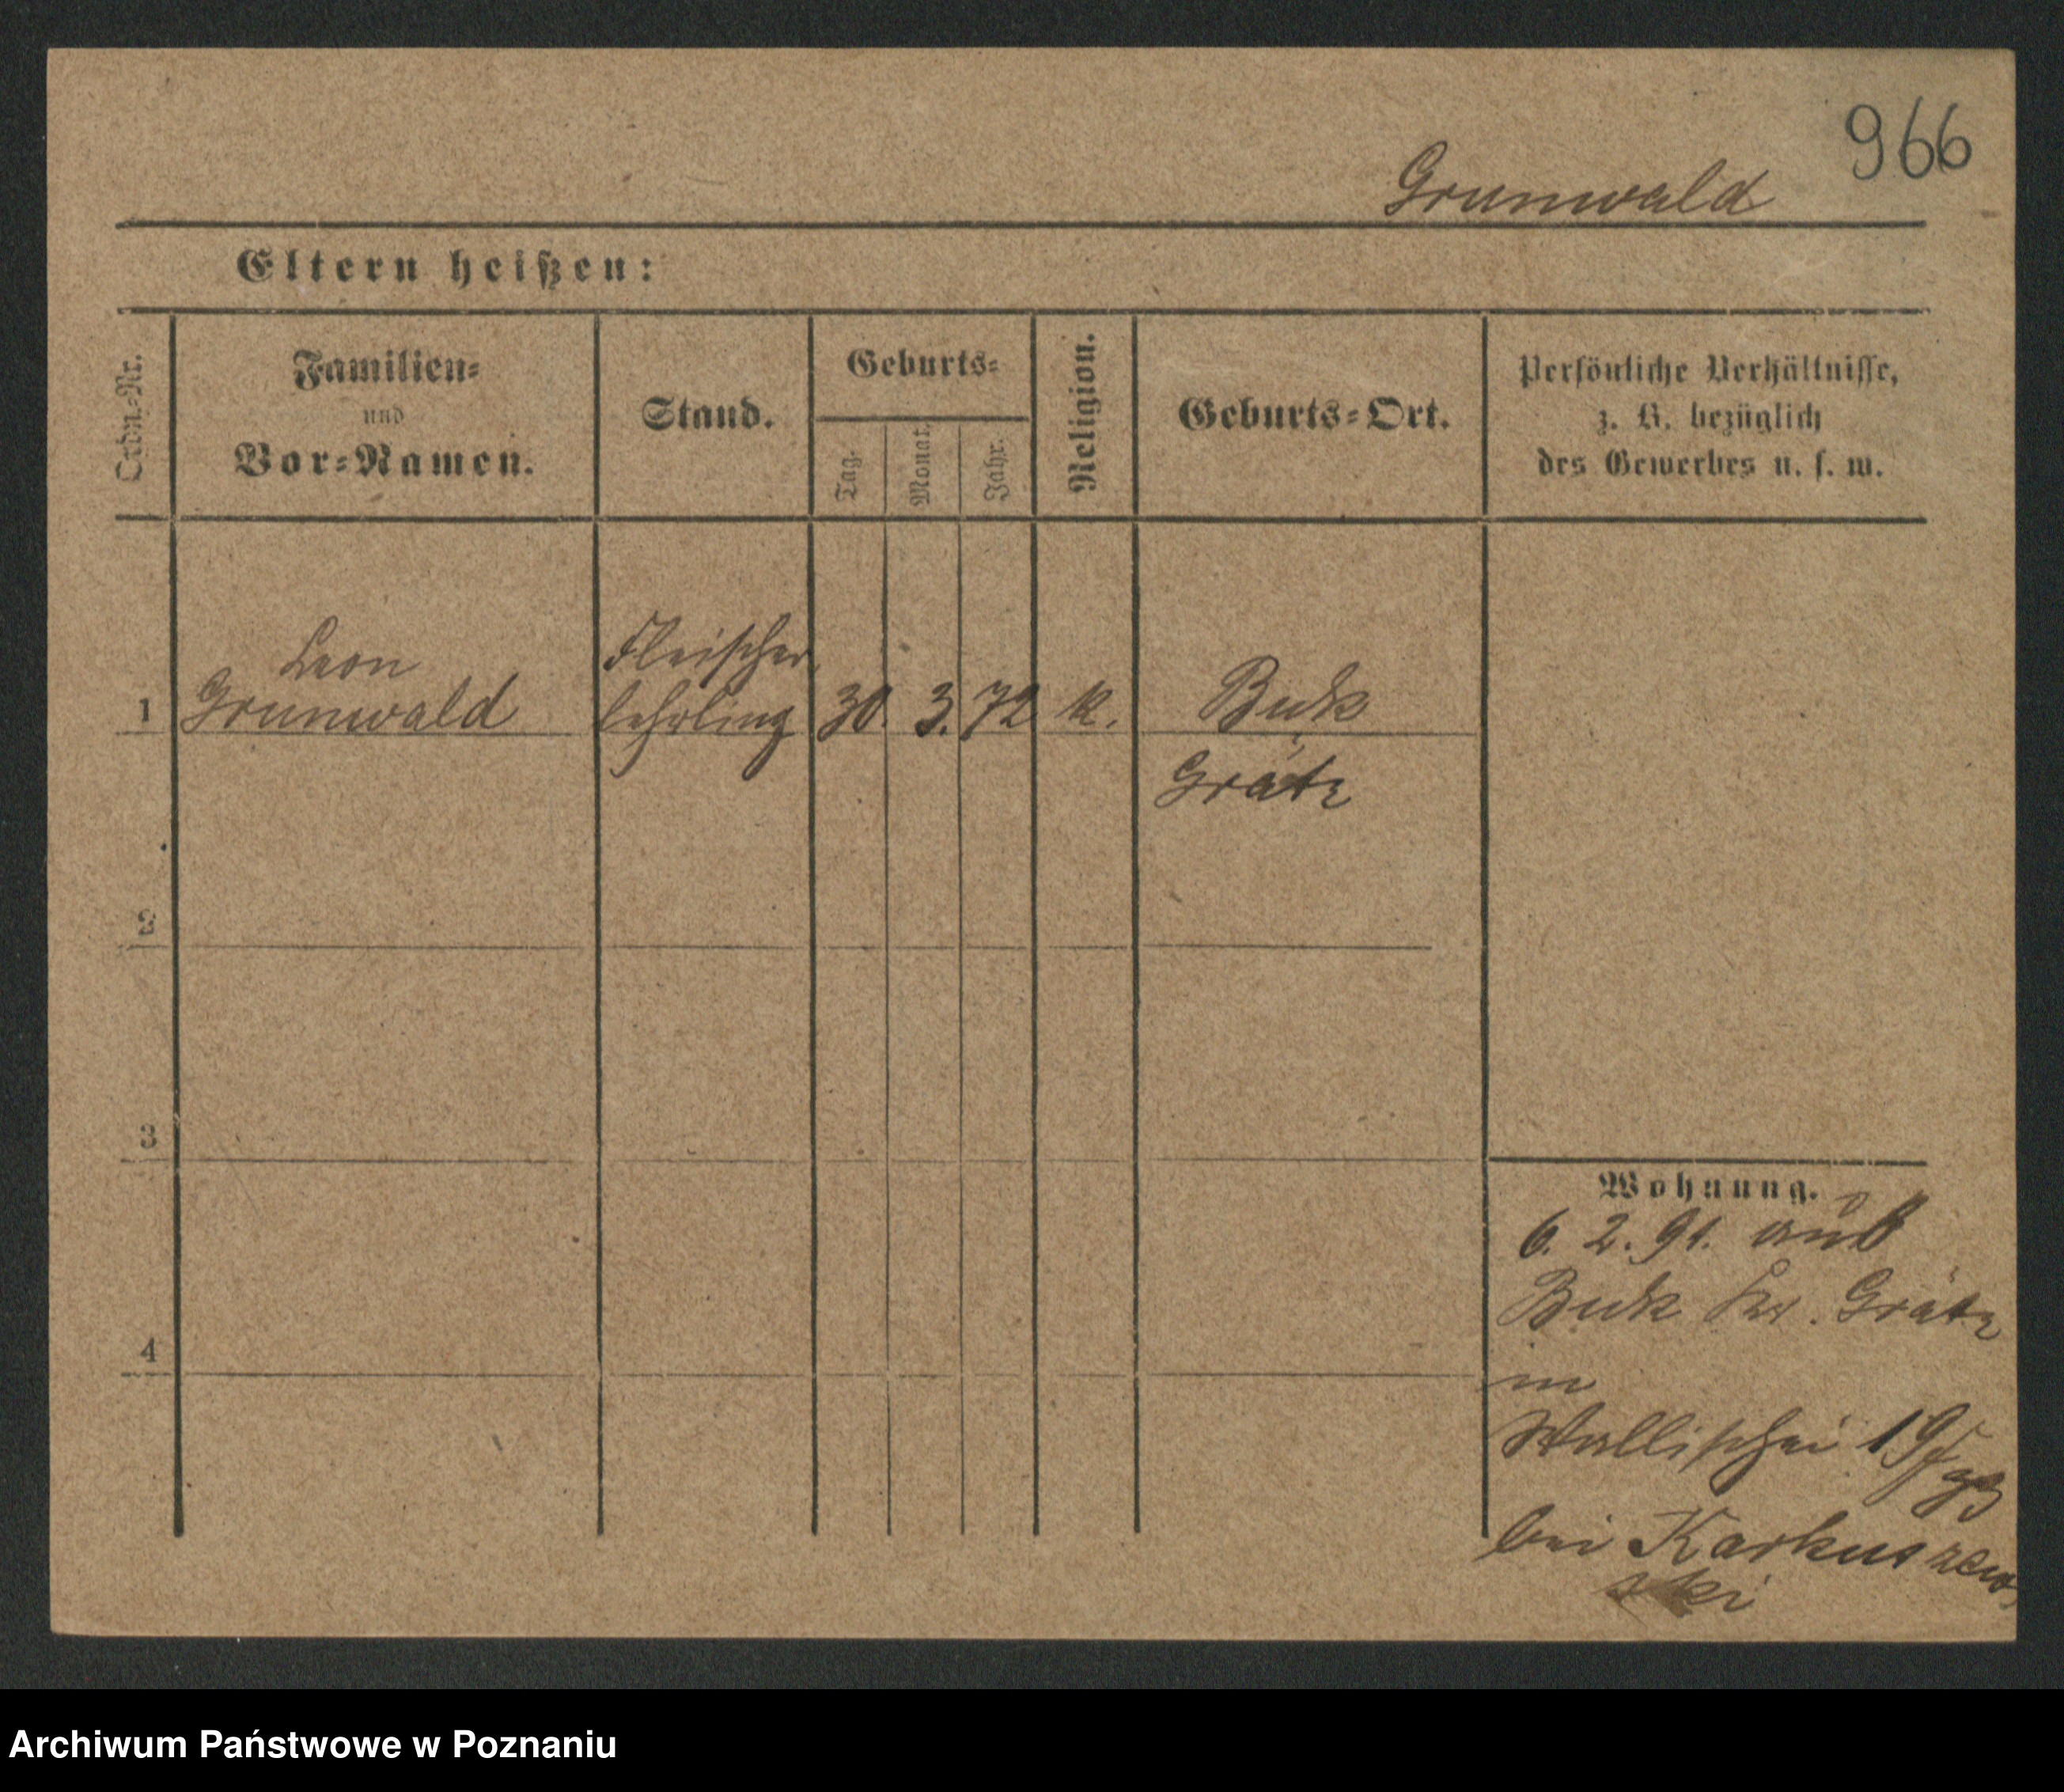 966
Grunwald
Eltern heißen:
Ordn.-Nr.
Familien-
und
Vor-Namen.
Stand.
Geburts-
Tag.
Monat.
Jahr.
Religion.
Geburts-Ort.
Persönliche Verhältnisse,
z. B. bezüglich
des Gewerbes u. s. w.
Leon
Fleischer
1 Grunwald lehrling 30. 3. 72 k. Buk
Grätz
2
3
4
Wohnung.
6. 2. 91. aus
Buk Kr. Grätz
in
Wallischei
bei Karkuszew
ski
Archiwum Państwowe w Poznaniu